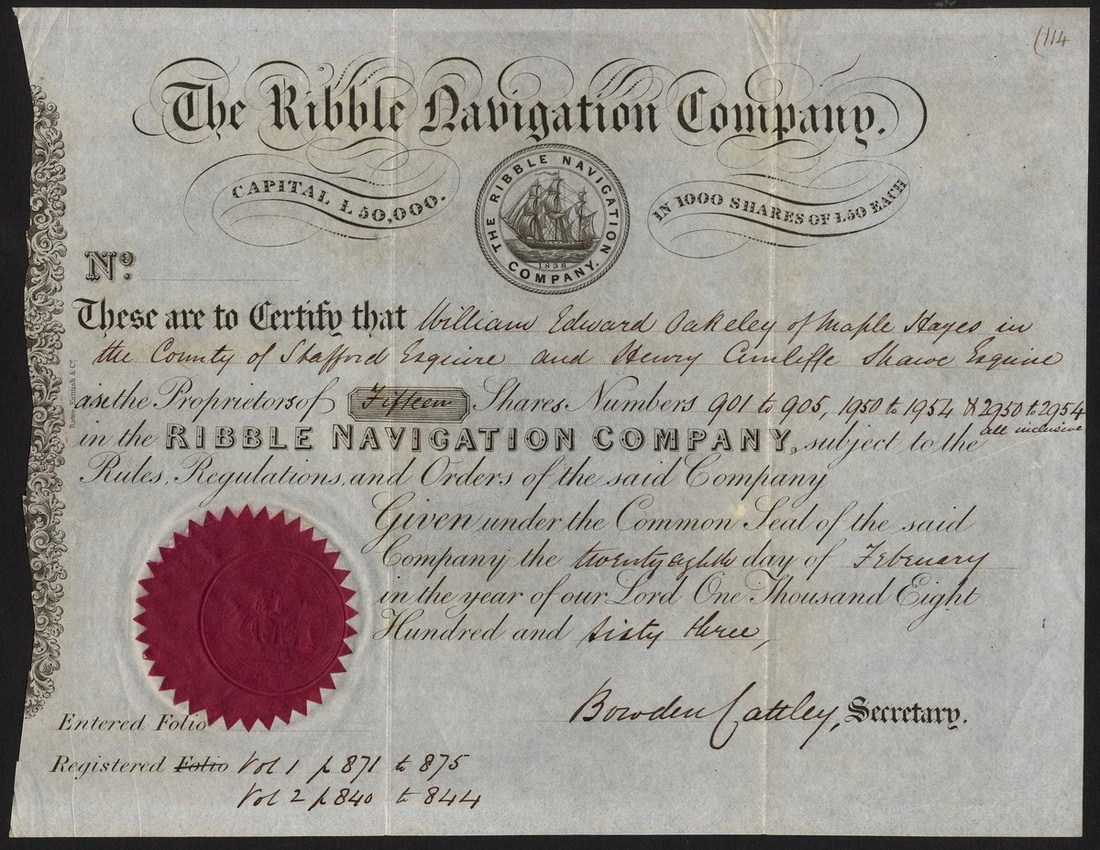 (114
The Ribble Navigation Company.
CAPITAL L 50,000.
THE RIBBLE NAVIGATION COMPANY.
1838
IN 1000 SHARES OF L50 EACH
No.
These are to Certify that William Edward Oakeley of Maple Hayes in
the County of Stafford Esquire and Henry Cunliffe Shawe Esquire
are the Proprietors of Fifteen Shares Numbers 901 to 905, 1950 to 1954 & 2950 to 2954
all inclusive
in the RIBBLE NAVIGATION COMPANY, subject to the
Rules, Regulations, and Orders of the said Company
Given under the Common Seal of the said
Company the twenty eighth day of February
in the year of our Lord One Thousand Eight
Hundred and Sixty three,
Bowden Cattley, Secretary.
Entered Folio
Registered Folio Vol 1 p 871 to 875
Vol 2 p 840 to 844